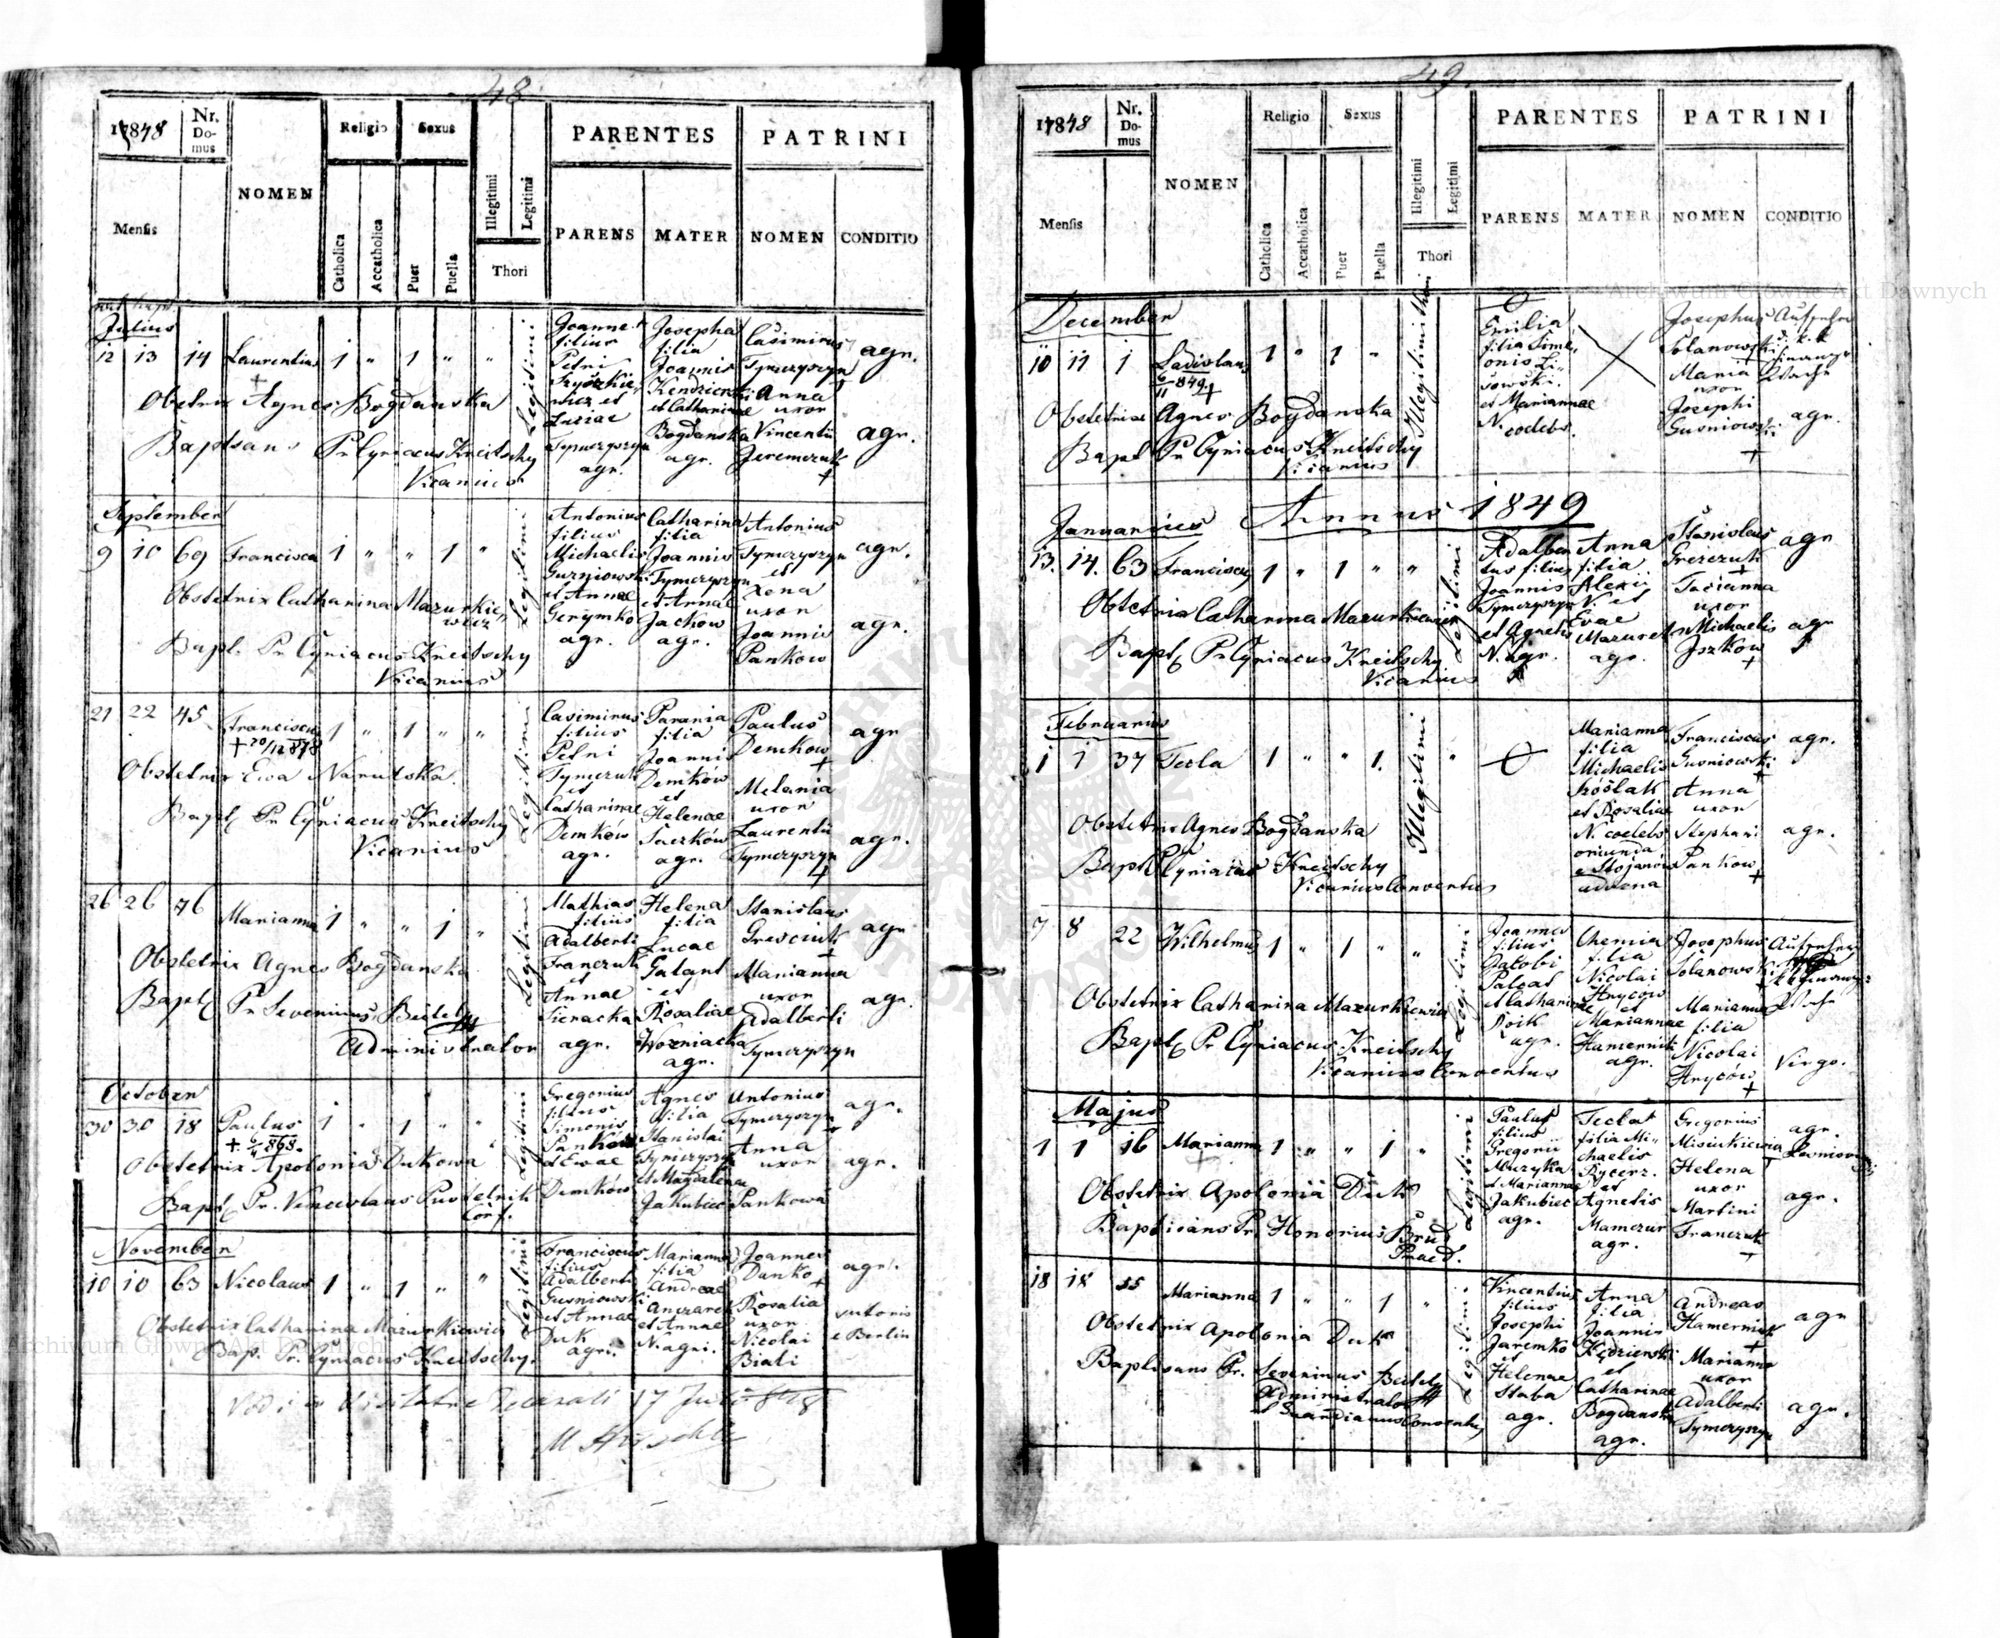 48
17848
Nr. Do- mus
NOMEN
Religio
Sexus
Illegitimi
Legitimi
PARENTES
PATRINI
Mensis
Catholica
Accatholica
Puer
Puella
Thori
PARENS
MATER
NOMEN
CONDITIO
Julius
12 13 14 Laurentius 1 " 1 " "
Legitimi
Joannes
filius
Petri
et
Luciae
Tymczyszyn
agr.
Josepha
filia
Joannis
Kendzierski
et Catharinae
Bogdanska
agr.
Casimirus
Tymczyszyn
Anna
uxor
Vincentii
Jeremczuk
agr.
agr.
Obstetrix Agnes Bogdanska
Baptisans Pr Cyriacus Kreitschy
Vicarius
September
9 10 69 Francisca 1 " " 1 "
Legitimi
Antonius
filius
Michaelis
Gusniowski
et Annae
Gerymko
agr.
Catharina
filia
Joannis
Tymczyszyn
et Annae
Jachow
agr.
Antonius
Tymczyszyn
et
Xena
uxor
Joannis
Pankow
agr.
agr.
Obstetrix Catharina Mazurkie-
wicz
Bapt. Pr Cyriacus Kreitschy
Vicarius
21 22 45 Franciscus 1 " 1 " "
+ 20/12 878
Legitimi
Casimirus
filius
Petri
Tymczuk
et
Catharinae
Demków
agr.
Parania
filia
Joannis
Demków
et
Helenae
Saczków
agr.
Paulus
Demkow
Melania
uxor
Laurentii
Tymczyszyn
agr
agr.
Obstetrix Ewa Narutska.
Bapt Pr Cyriacus Kreitschy
Vicarius
26 26 76 Marianna 1 " " 1 "
Legitimi
Mathias
filius
Adalberti
Franczuk
et
Annae
Sieracka
agr.
Helena
filia
Lucae
Galant
et
Rosaliae
Wozniacka
agr.
Stanislaus
Gresciuk
Marianna
uxor
Adalberti
Tymczyszyn
agr
agr.
Obstetrix Agnes Bogdanska
Bapt Pr Severinus Beitely
Administrator
October
30 30 18 Paulus 1 " 1 " "
Legitimi
Gregorius
filius
Simonis
Panków
et Evae
Demków
Agnes
filia
Stanislai
Tymczyszyn
et Magdalena
Jakubiec
Antonius
Tymczyszyn
Anna
uxor
Pankowa
agr.
agr.
Obstetrix Apolonia Dukowa
Bapt Pr. Venceslaus Pustelnik
November
10 10 63 Nicolaus 1 " 1 " "
Legitimi
Franciscus
filius
Adalberti
Gusniowski
et Annae
Duk
agri.
Marianna
filia
Andreae
et Annae
N. agri.
Joannes
Danko
Rosalia
uxor
Nicolai
Biali
agr.
sutoris
e Berlin
Obstetrix Catharina Mazurkiewicz
Bap. Pr. Cyriacus Kreitschy.
49
17848
Nr. Do- mus
NOMEN
Religio
Sexus
Illegitimi
Legitimi
PARENTES
PATRINI
Mensis
Catholica
Accatholica
Puer
Puella
Thori
PARENS
MATER
NOMEN
CONDITIO
December
10 11 1 Ladislaus 1 " 1 "
Illegitimi thori
Emilia
filia Sime-
onis Li-
sowski.
et Mariannae
N. coelebs.
Josephus
Solanowski
Maria
uxor
Josephi
Gusniowski
Aufseher
d. k. k.
Finanz
Wache
agr.
Obstetrix Agnes Bogdanska
Bapt Pr Cyriacus Kreitschy
Vicarius
Annus 1849
Januarius
13. 14. 63 Franciscus 1 " 1 " "
Legitimi
Adalber-
tus filius
Joannis
Tymczyszyn
et Agnetis
N. agr.
Anna
filia
Alexii
N. et
Evae
Mazurek
agr.
Stanislaus
Grezczuk
Tacianna
uxor
Michaelis
Jszków
agr
agr
Obstetrix Catharina Mazurkiewicz
Bapt Pr Cyriacus Kreitschy
Vicarius
Februarius
1 1 37 Tecla 1 " " 1. "
Illegitimi
Marianna
filia
Michaelis
et Rosaliae
N. coelebs
oriunda
e Stojanów
advena
Franciscus
Gusniowski
Anna
uxor
Stephani
Pankow
agr.
agr.
Obstetrix Agnes Bogdanska
Bapt P Cyriacus Kreitschy
Vicarius Conventus
7 8 22 Wilhelmus 1 " 1 " "
Legitimi
Joannes
filius
Jakobi
Palcat
et Catharinae
Roik
agr.
Chemia
filia
Nicolai
Hryców
et
Mariannae
Hamernik
agr.
Josephus
Solanowski
Marianna
filia
Nicolai
Hryców
Aufseher
k k Finanz-
Wache
Virgo.
Obstetrix Catharina Mazurkiewicz
Bapt Pr Cyriacus Kreitschy
Vicarius Conventus
Majus
1 1 16 Marianna 1 " " 1 "
Legitimi
Paulus
filius
Gregorii
Muzyka
et Mariannae
Jakubiec
agr.
Tecla
filia Mi-
chaelis
Rycerz.
et
Agnetis
Mamczur
agr.
Gregorius
Misiukiewicz
Helena
uxor
Martini
Franczuk
agr.
agr.
Obstetrix Apolonia Duk
Baptisans Pr. Honorius Brud
Praed.
18 18 55 Marianna 1 " " 1 "
Legitimi
Vincentius
filius
Josephi
Jaremko
et
Helenae
Staba
agr.
Anna
filia
Joannis
Kędzierski
et
Catharinae
Bogdanska
agr.
Andreas
Hamernik
Marianna
uxor
Adalberti
Tymczyszyn
agr
agr.
Obstetrix Apolonia Duk
Baptisans Pr. Severinus Beitely
Administrator
et Guardianus Conventus
Archiwum Główne Akt Dawnych
Archiwum Główne Akt Dawnych